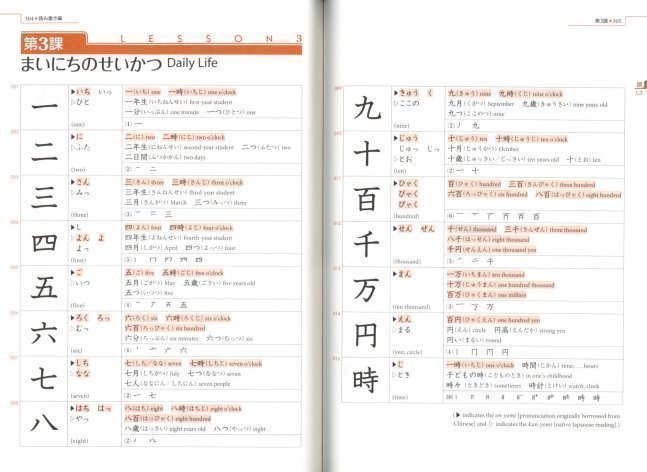 304▶読み書き編
第3課 LESSON 3
まいにちのせいかつ Daily Life
001
一
▶いち いっ
▷ひと
(one)
一(いち) one 一時(いちじ) one o'clock
一年生(いちねんせい) first-year student
一分(いっぷん) one minute 一つ(ひとつ) one
(1) 一
二
▶に
▷ふた
(two)
二(に) two 二時(にじ) two o'clock
二年生(にねんせい) second-year student 二つ(ふたつ) two
二日間(ふつかかん) two days
(2) 一 二
003
三
▶さん
▷みっ
(three)
三(さん) three 三時(さんじ) three o'clock
三年生(さんねんせい) third-year student
三月(さんがつ) March 三つ(みっつ) three
(3) 一 二 三
004
四
▶し
▷よん よ
よっ
(four)
四(よん) four 四時(よじ) four o'clock
四年生(よねんせい) fourth-year student
四月(しがつ) April 四つ(よっつ) four
(5)
五
▶ご
▷いつ
(five)
五(ご) five 五時(ごじ) five o'clock
五月(ごがつ) May 五歳(ごさい) five years old
五つ(いつつ) five
(4)
六
▶ろく ろっ
▷むっ
(six)
六(ろく) six 六時(ろくじ) six o'clock
六百(ろっぴゃく) six hundred
六分(ろっぷん) six minutes 六つ(むっつ) six
(4)
007
七
▶しち
▷なな
(seven)
七(しち/なな) seven 七時(しちじ) seven o'clock
七月(しちがつ) July 七つ(ななつ) seven
七人(ななにん/しちにん) seven people
(2) 一 七
008
八
▶はち はっ
▷やっ
(eight)
八(はち) eight 八時(はちじ) eight o'clock
八百(はっぴゃく) eight hundred
八歳(はっさい) eight years old 八つ(やっつ) eight
(2) ノ 八
第3課◀305
読
L3
009
九
▶きゅう く
▷ここの
(nine)
九(きゅう) nine 九時(くじ) nine o'clock
九月(くがつ) September 九歳(きゅうさい) nine years old
九つ(ここのつ) nine
(2) ノ 九
010
十
▶じゅう
じゅっ じっ
▷とお
(ten)
十(じゅう) ten 十時(じゅうじ) ten o'clock
十月(じゅうがつ) October
十歳(じゅっさい/じっさい) ten years old 十(とお) ten
(2) 一 十
011
百
▶ひゃく
びゃく
ぴゃく
(hundred)
百(ひゃく) hundred 三百(さんびゃく) three hundred
六百(ろっぴゃく) six hundred 八百(はっぴゃく) eight hundred
(6)
012
千
▶せん ぜん
(thousand)
千(せん) thousand 三千(さんぜん) three thousand
八千(はっせん) eight thousand
千円(せんえん) one thousand yen
(3)
013
万
▶まん
(ten thousand)
一万(いちまん) ten thousand
十万(じゅうまん) one hundred thousand
百万(ひゃくまん) one million
(3)
円
▶えん
▷まる
(yen; circle)
百円(ひゃくえん) one hundred yen
円(えん) circle 円高(えんだか) strong yen
円い(まるい) round
(4)
015
時
▶じ
▷とき
(time)
一時(いちじ) one o'clock 時間(じかん) time; … hours
子どもの時(こどものとき) in one's childhood
時々(ときどき) sometimes 時計(とけい) watch; clock
(10)
(▶ indicates the on-yomi [pronunciation originally borrowed from
Chinese] and ▷ indicates the kun-yomi [native Japanese reading].)